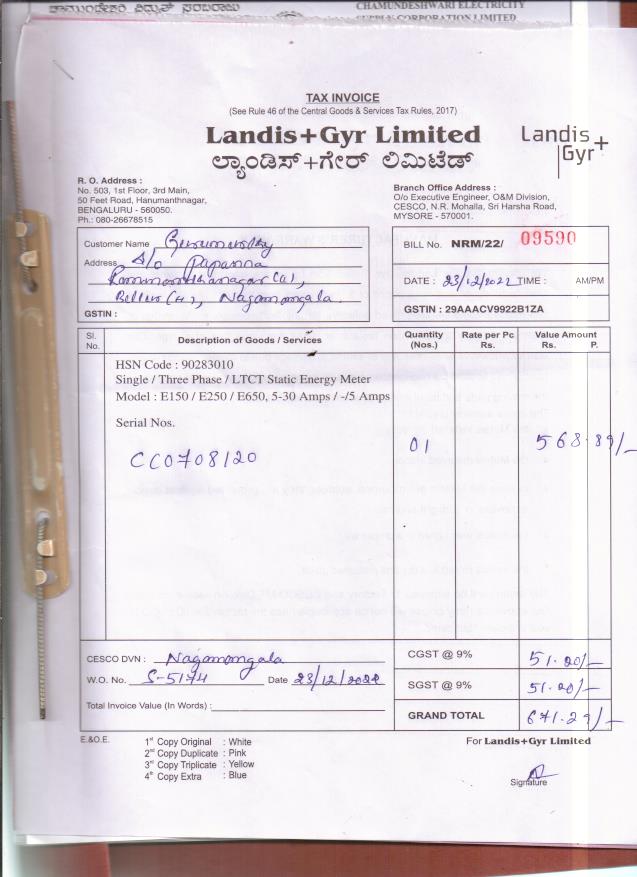 ಚಾಮುಂಡೇಶ್ವರಿ ವಿದ್ಯುತ್ ಸರಬರಾಜು
CHAMUNDESHWARI ELECTRICITY
SUPPLY CORPORATION LIMITED
TAX INVOICE
(See Rule 46 of the Central Goods & Services Tax Rules, 2017)
Landis+Gyr Limited
ಲ್ಯಾಂಡಿಸ್+ಗೇರ್ ಲಿಮಿಟೆಡ್
Landis+
Gyr
R. O. Address :
No. 503, 1st Floor, 3rd Main,
50 Feet Road, Hanumanthnagar,
BENGALURU - 560050.
Ph.: 080-26678515
Branch Office Address :
O/o Executive Engineer, O&M Division,
CESCO, N.R. Mohalla, Sri Harsha Road,
MYSORE - 570001.
Customer Name
Address S/o Papanna
Nagamangala.
GSTIN :
BILL No. NRM/22/ 09590
DATE : 23/12/2022 TIME : AM/PM
GSTIN : 29AAACV9922B1ZA
Sl. No. Description of Goods / Services Quantity (Nos.) Rate per Pc Rs. Value Amount Rs. P.
HSN Code : 90283010
Single / Three Phase / LTCT Static Energy Meter
Model : E150 / E250 / E650, 5-30 Amps / -/5 Amps
Serial Nos.
CC0708120 01 568.89/-
CESCO DVN : Nagamangala
W.O. No. S-5174 Date 23/12/2022
Total Invoice Value (In Words) :
CGST @ 9% 51.20/-
SGST @ 9% 51.20/-
GRAND TOTAL 671.29/-
E.&O.E.
1st Copy Original : White
2nd Copy Duplicate : Pink
3rd Copy Triplicate : Yellow
4th Copy Extra : Blue
For Landis+Gyr Limited
Signature